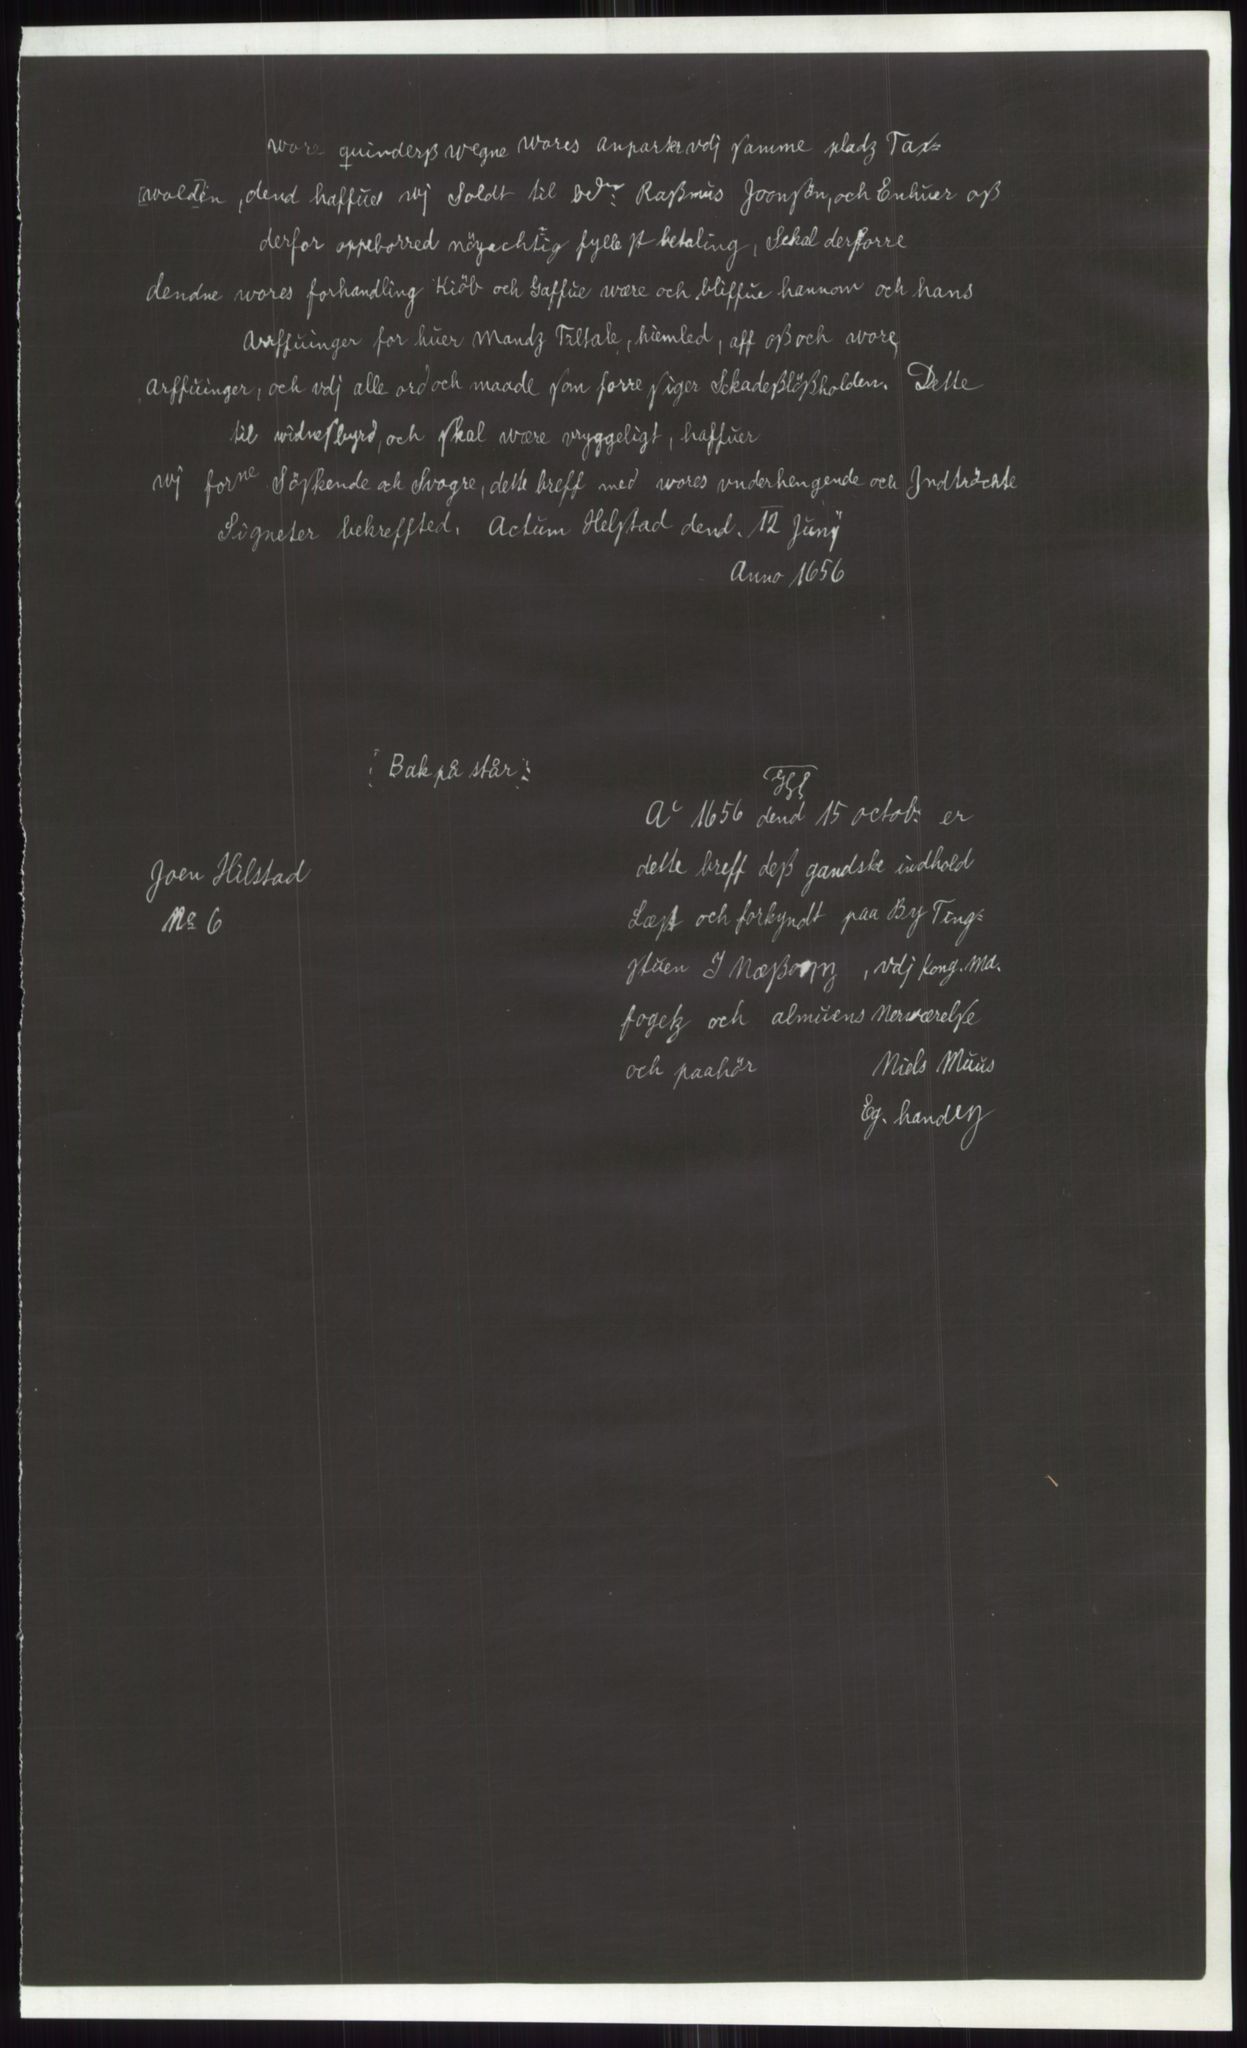 wore quinderß wegne wores anparter vdj samme pladz Tax=
[wold]en, dend haffuer wj Soldt til bedr: Raßmus Joonßøn, och Enhuer oß
derfor oppeborred nöyachtig fyllest betaling, Sckal derforre
dendne wores forhandling Kiöb och Gaffue wære och bliffue hannom och hans
Arffuinger for huer Mandz Tiltale, hiemled, aff oß och wore
Arffuinger, och vdj alle ord och maade som forre siger Sckadeßlößholden. Dette
til widnesbyrd, och skal wære vryggeligt, haffuer
wj forne Söskende och Svogre, dette breff med wores vnderhengende och Jndtröckte
Signeter bekreffted. Actum Helstad dend. 12 Junÿ
Anno 1656
Bak på står:
Ao 1656 dend 15 octob: er
dette breff deß gandske indhold
Læst och forkyndt paa By Ting=
stuen I , vdj kong. Ma.
fogetz och almuens Nerwærelse
och paahör Niels Muus
Eg. hand
Joen Hilstad
No 6